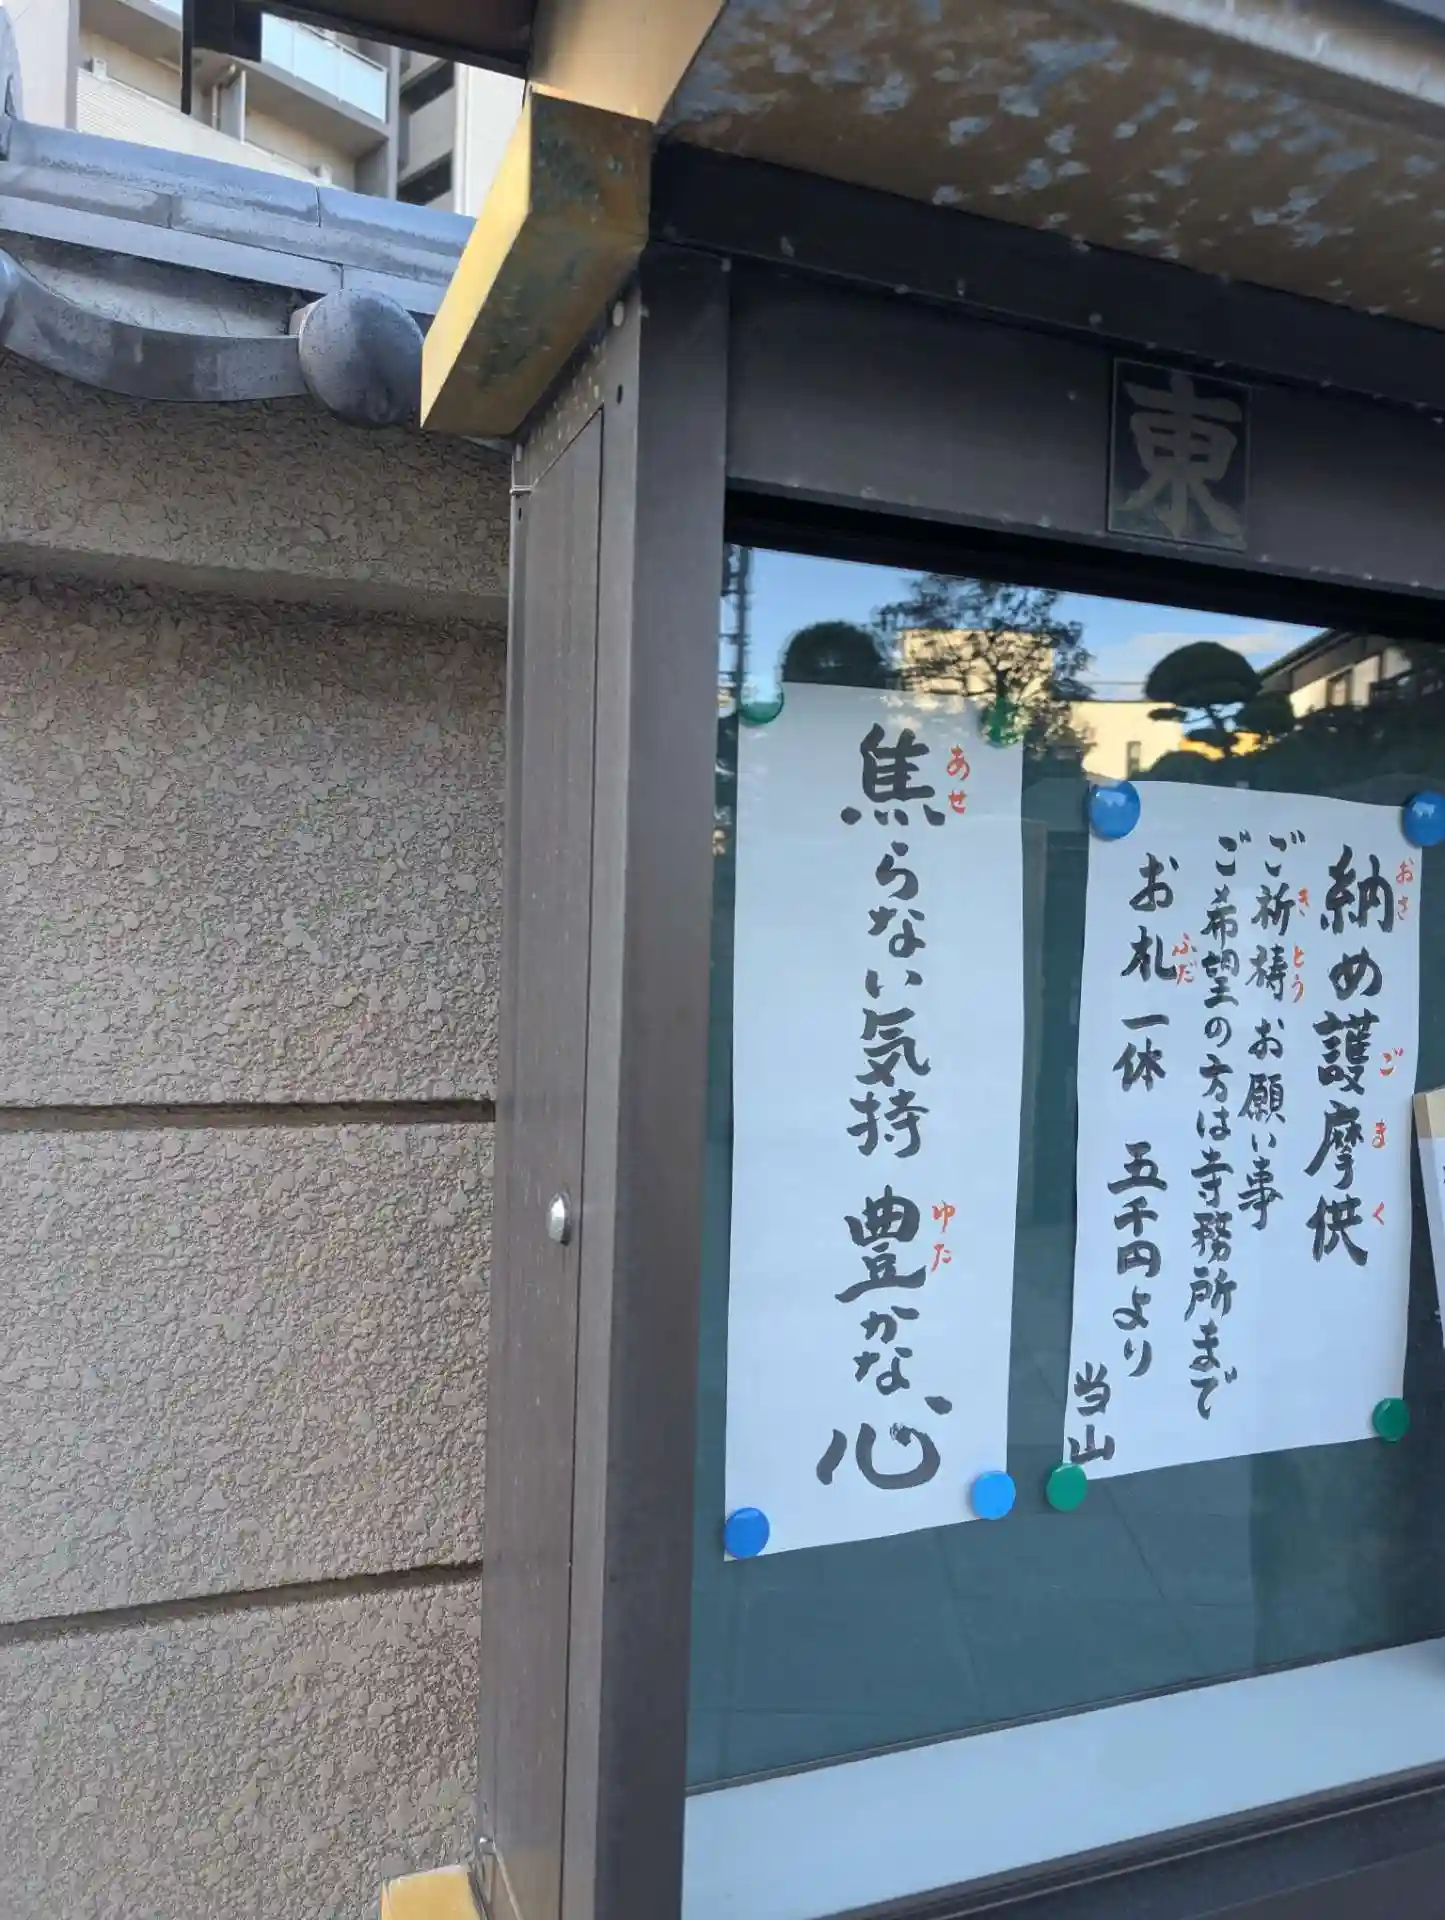 東
納め護摩供
おさ
ごまく
ご祈祷お願い事
きとう
ご希望の方は寺務所まで
お札 一体 五千円より
ふだ
当山
焦らない気持 豊かな心
あせ
ゆた